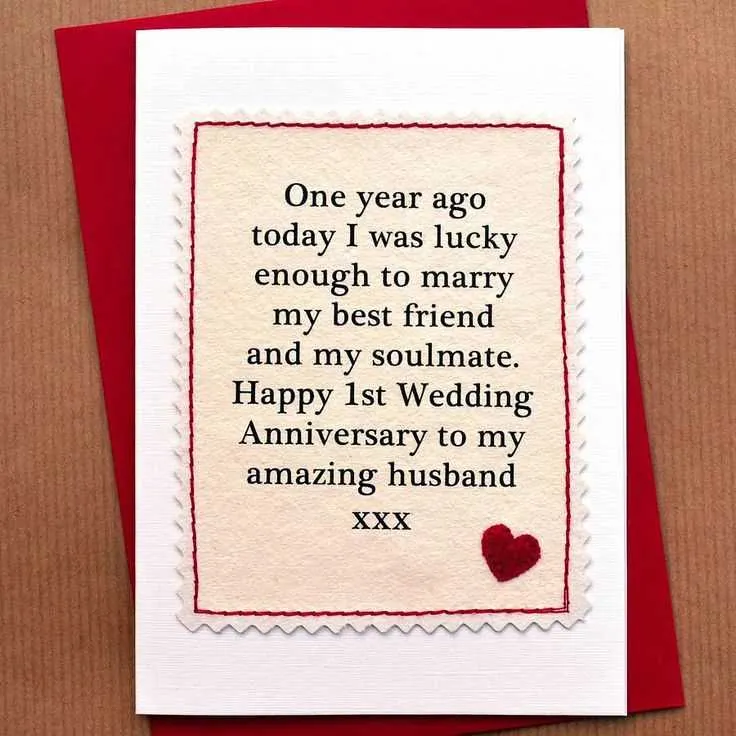 One year ago
today I was lucky
enough to marry
my best friend
and my soulmate.
Happy 1st Wedding
Anniversary to my
amazing husband
xxx